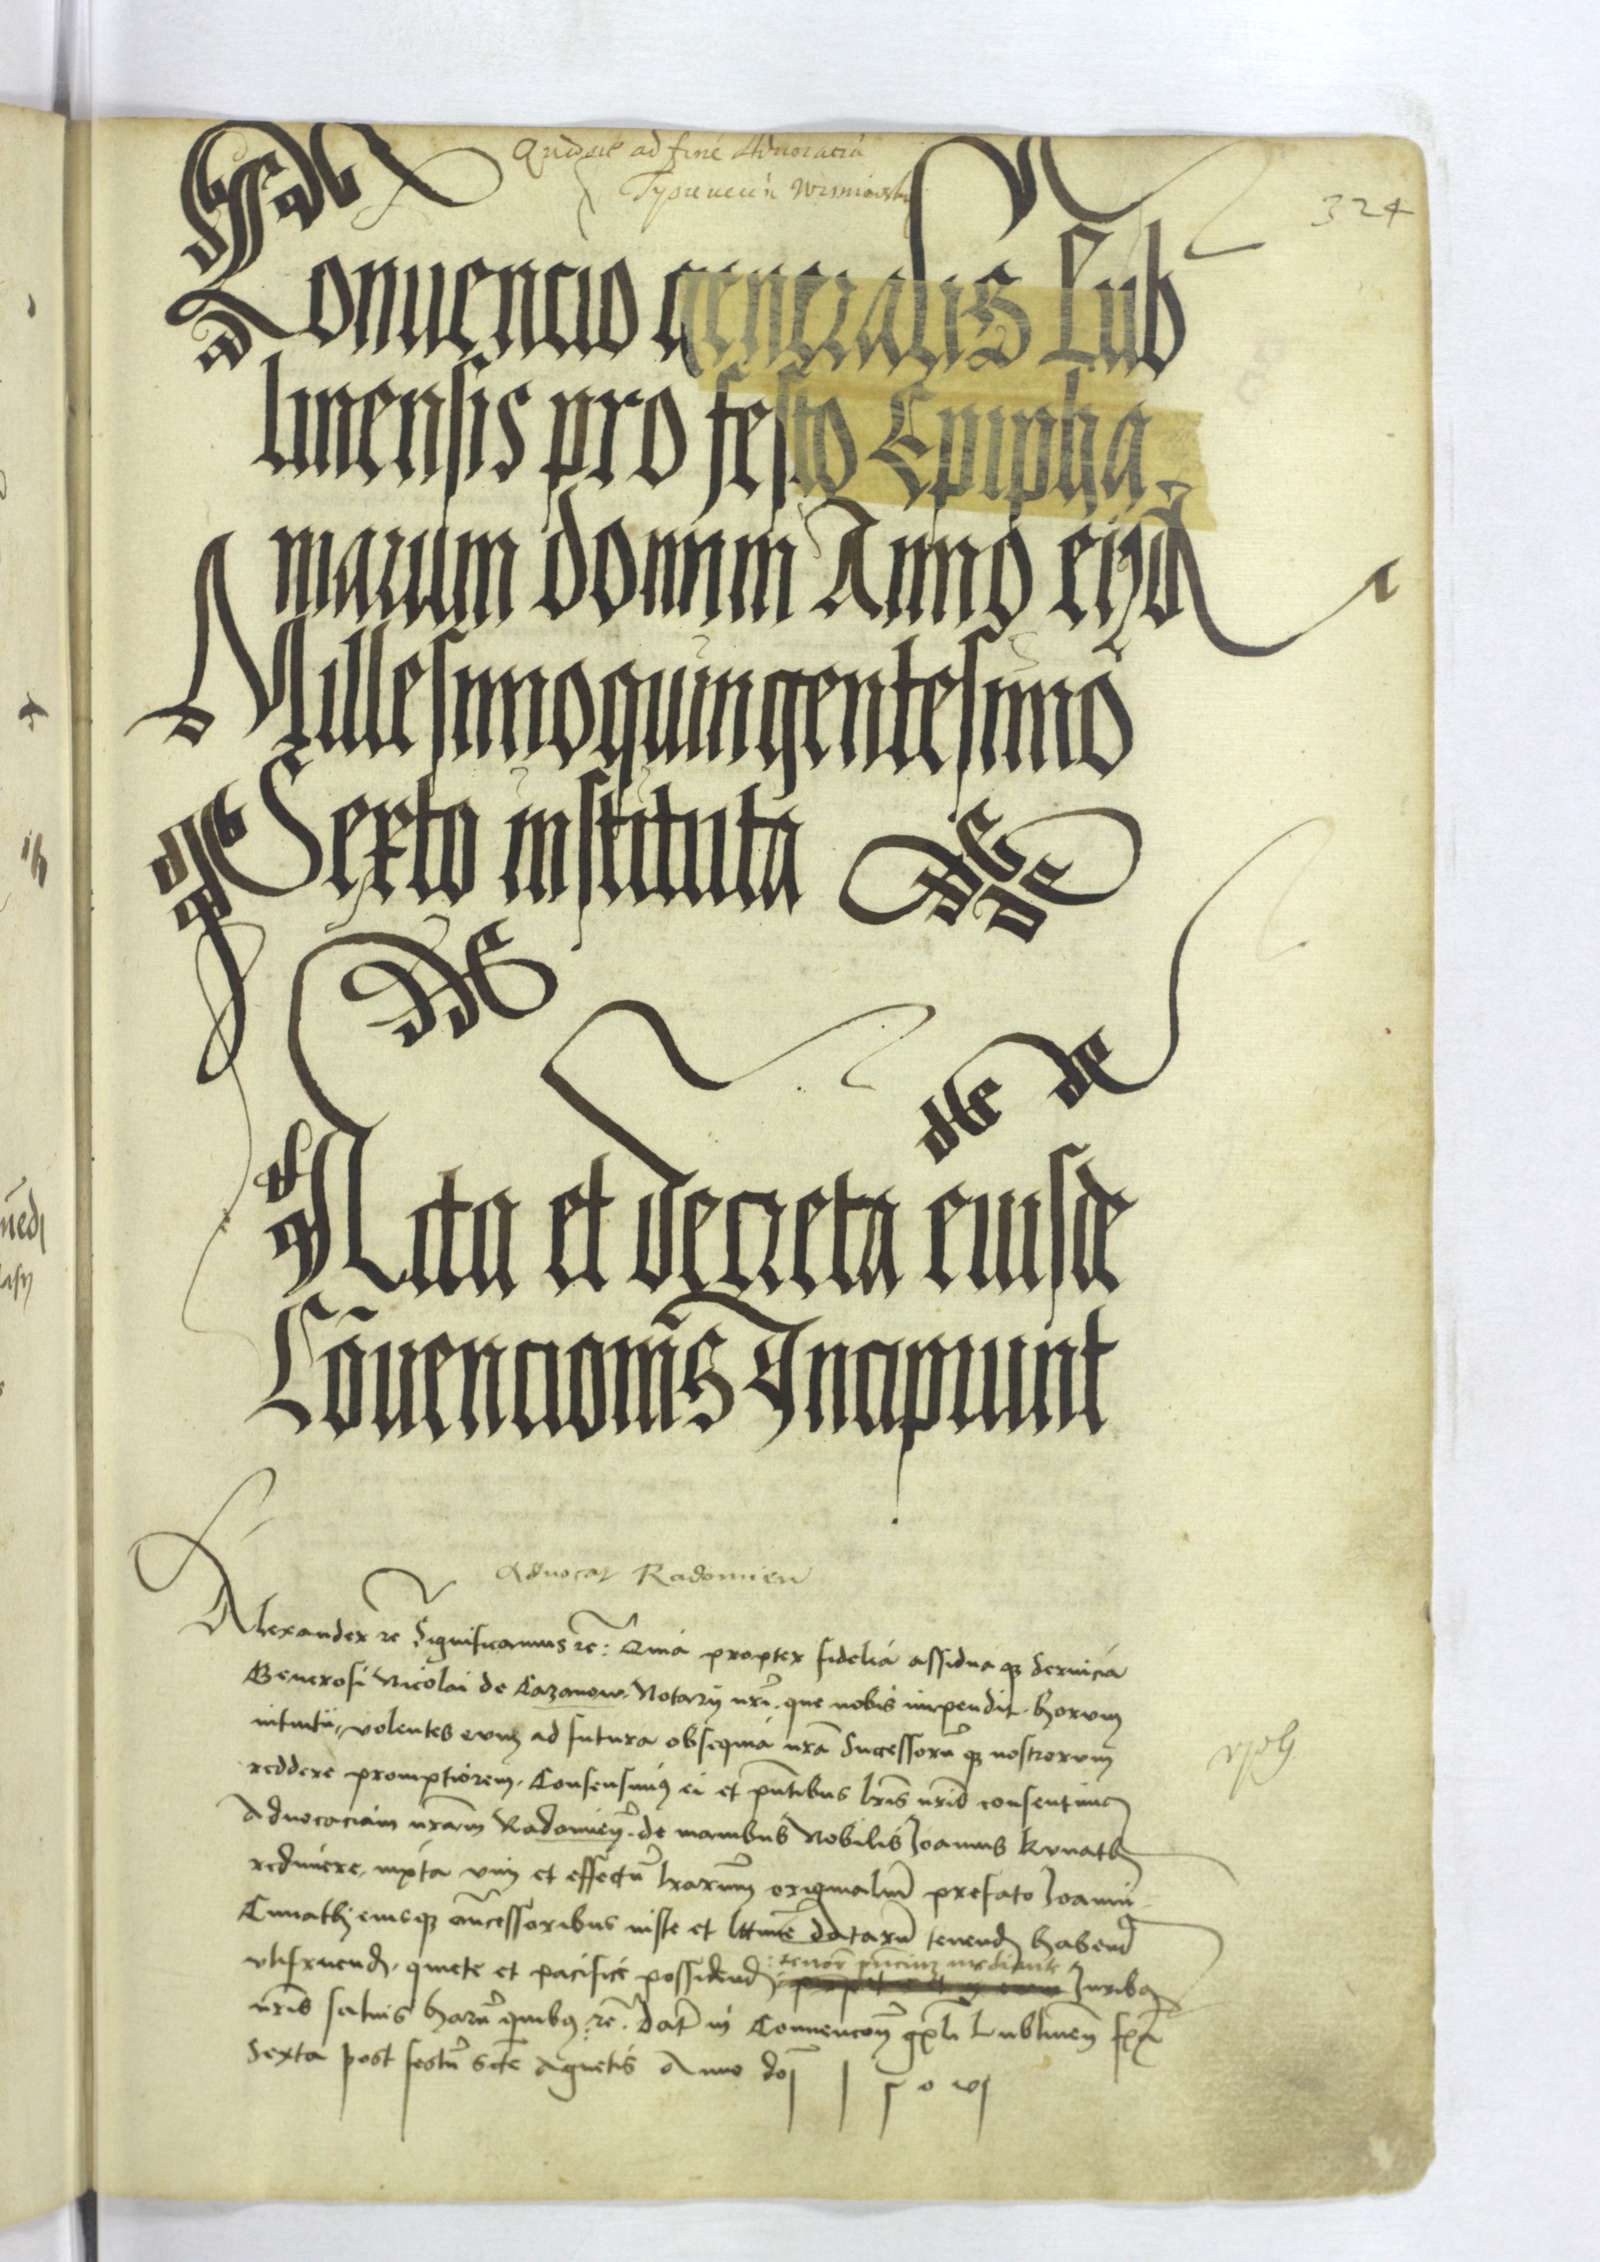 ad fine Advocatia
324
Conuencio generalis Lub
linensis pro festo Epipha
niarum domini Anno eiusd
Millesimoquingentesimo
Sexto instituta
Acta et decreta eiusdē
Cōuencionis Incipiunt
Advocat Radomien
Alexander rc Significamus rc: Quia propter fidelia assiduaque seruicia
Generosi Nicolai de Cazanow. Notarij nrī. que nobis impendit. horum
intuitu, volentes eum ad futura obsequia nrā Successorūque nostrorum
reddere promptiorem. Consensimus ei et pn̄tibus lrīs nrīs consentimus
Aduocaciam nrām Radomien. de manibus Nobilis Joannis Kunath
redimere, iuxta vim et effectū lrārum originaliū prefato Joanni
Cunath eiusque an̄cessoribus iuste et lttime datarū tenend habend
vtifruend. quiete et pacifice possidend. Juribus
nrīs saluis harū quibus rc. Dat in Conuencōn gn̄li Lublinen fr̄ia
Sexta post festū sctē Agnetis Anno doī 1506